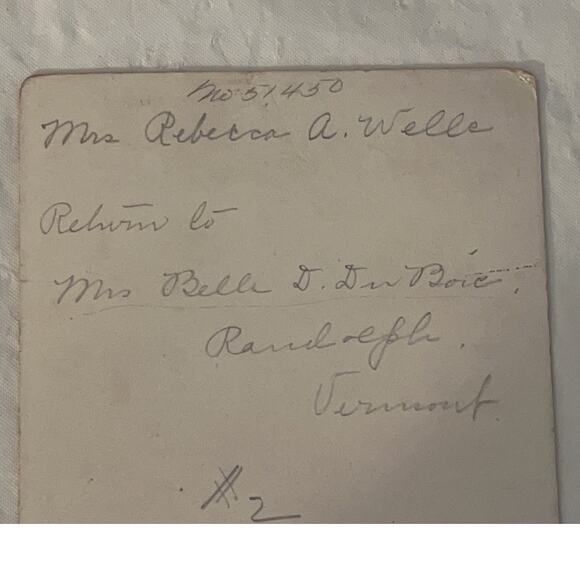 No 51,450
Mrs Rebecca A. Wells
Return to
Mrs Belle D. Du Bois.
Randolph.
Vermont.
#2